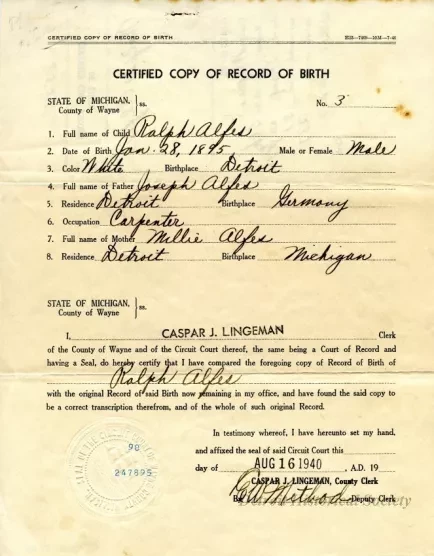 CERTIFIED COPY OF RECORD OF BIRTH
CERTIFIED COPY OF RECORD OF BIRTH
STATE OF MICHIGAN, } ss. No. 3
County of Wayne
1. Full name of Child Ralph Alfes
2. Date of Birth Jan. 28, 1895 Male or Female Male
3. Color White Birthplace Detroit
4. Full name of Father Joseph Alfes
5. Residence Detroit Birthplace Germany
6. Occupation Carpenter
7. Full name of Mother Millie Alfes
8. Residence Detroit Birthplace Michigan
STATE OF MICHIGAN, } ss.
County of Wayne
I, CASPAR J. LINGEMAN Clerk
of the County of Wayne and of the Circuit Court thereof, the same being a Court of Record and
having a Seal, do hereby certify that I have compared the foregoing copy of Record of Birth of
Ralph Alfes
with the original Record of said Birth now remaining in my office, and have found the said copy to
be a correct transcription therefrom, and of the whole of such original Record.
In testimony whereof, I have hereunto set my hand,
and affixed the seal of said Circuit Court this
day of AUG 16 1940, A.D. 19
CASPAR J. LINGEMAN, County Clerk
By Deputy Clerk
Detroit Historical Society
90
247895